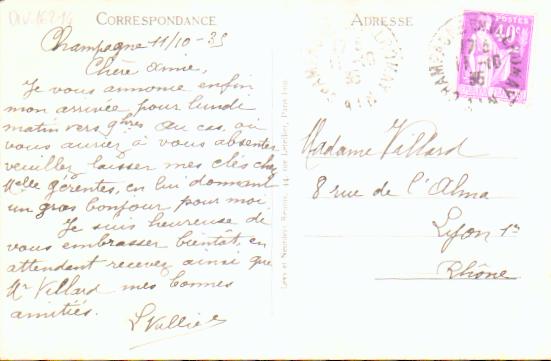 DIV.16214
CORRESPONDANCE
Champagne 11/10-35
Chère Amie,
Je vous annonce enfin
mon arrivée pour lundi
matin vers 9hres Au cas, où
vous auriez à vous absenter
veuillez laisser mes clés chez
Melle gérentes, en lui donnant
un gros bonjour pour moi.
Je suis heureuse de
vous embrasser bientôt, en
attendant recevez ainsi que
Mr Villard mes bonnes
amitiés.
ADRESSE
POSTES
40c
17 10
35
AIN
17 10
35
AIN
Madame Villard
8 rue de l'Alma
Lyon 1r
Rhône